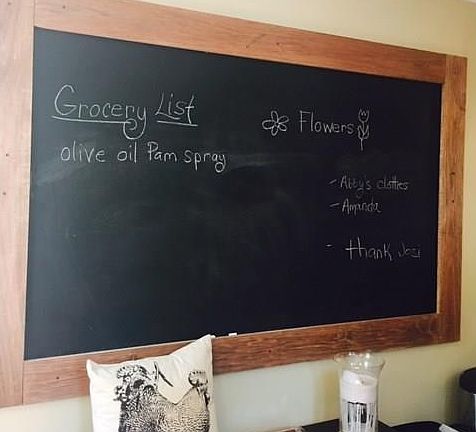 Grocery List
olive oil Pam spray
Flowers
- Abby's clothes
- Amanda
- thank Jozi